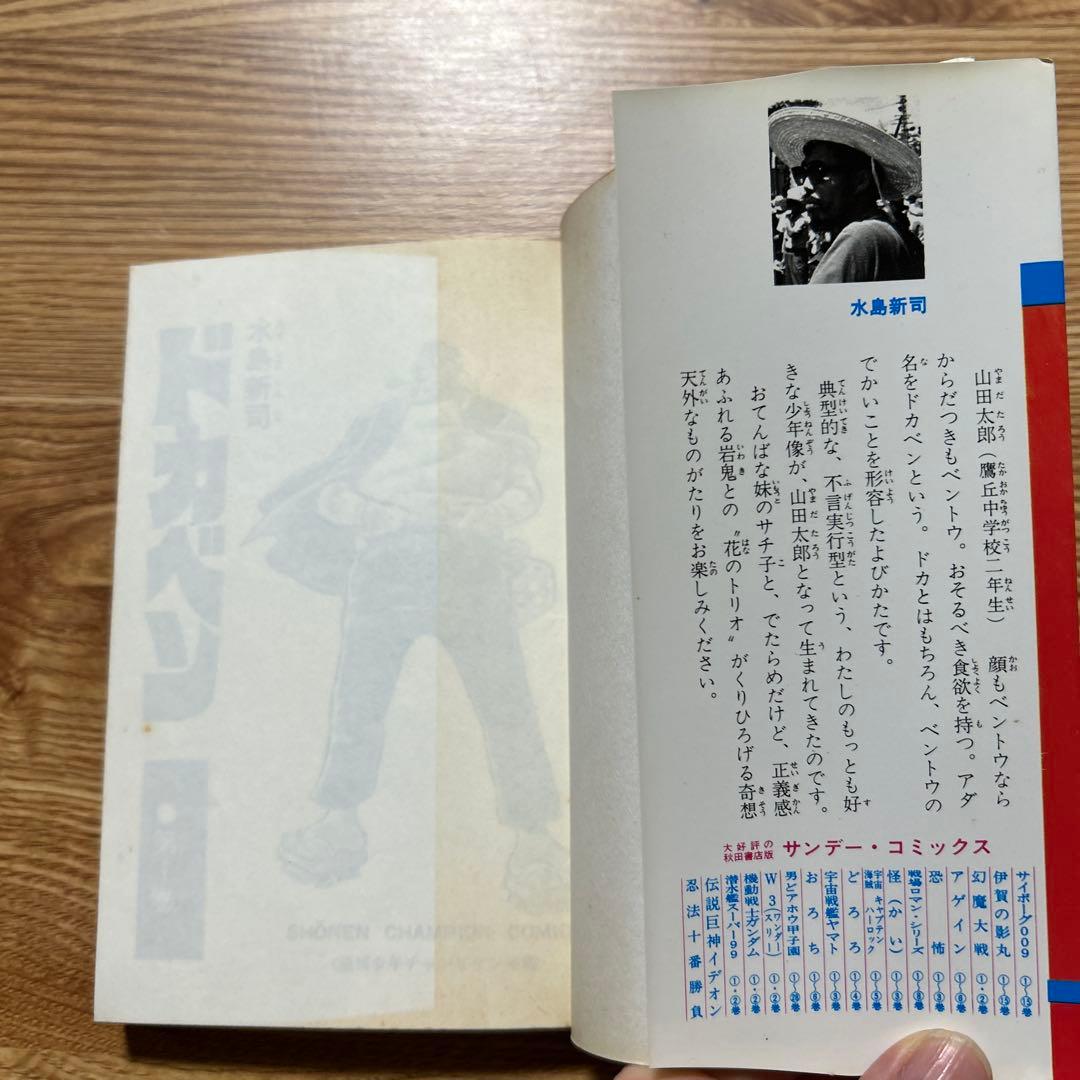 水島新司
山田太郎（鷹丘中学校二年生）　顔もベントウなら
からだつきもベントウ。おそるべき食欲を持つ。アダ
名をドカベンという。ドカとはもちろん、ベントウの
でかいことを形容したよびかたです。
典型的な、不言実行型という、わたしのもっとも好
きな少年像が、山田太郎となって生まれてきたのです。
おてんばな妹のサチ子と、でたらめだけど、正義感
あふれる岩鬼との〝花のトリオ〟がくりひろげる奇想
天外なものがたりをお楽しみください。
大好評の
秋田書店版
サンデー・コミックス
サイボーグ009 ①〜⑮巻
伊賀の影丸 ①〜⑮巻
幻魔大戦 ①・②巻
アゲイン ①〜⑥巻
恐怖 ①〜③巻
戦場ロマン・シリーズ ①〜⑧巻
怪（かい） ①〜③巻
宇宙海賊キャプテンハーロック ①〜⑤巻
どろろ ①〜④巻
宇宙戦艦ヤマト ①〜③巻
おろち ①〜⑥巻
男どアホウ甲子園 ①〜㉘巻
W3（ワンダースリー） ①・②巻
機動戦士ガンダム ①・②巻
潜水艦スーパー99 ①・②巻
伝説巨神イデオン
忍法十番勝負
水島新司
ドカベン
SHŌNEN CHAMPION COMICS